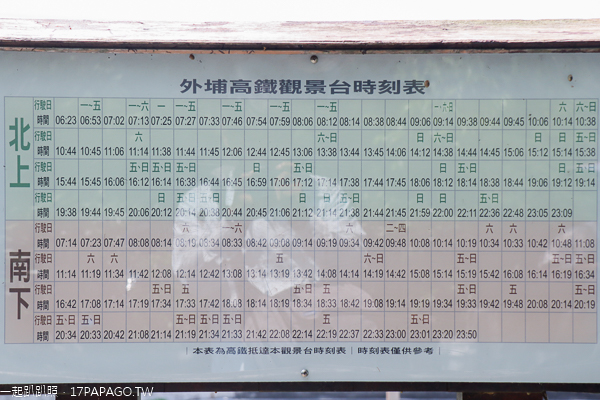 外埔高鐵觀景台時刻表
北上
行駛日 一~五 一~六 一 一~五 一~五 一~五 一~五 六 六~日
時間 06:23 06:53 07:02 07:13 07:25 07:27 07:33 07:46 07:54 07:59 08:06 08:12 08:14 08:38 08:44 09:06 09:14 09:38 09:44 09:45 10:06 10:14 10:38
行駛日 六 六~日 日 六~日 日 五~日
時間 10:44 10:45 11:06 11:14 11:38 11:44 11:45 12:06 12:44 12:45 13:06 13:38 13:44 13:45 14:06 14:12 14:38 14:44 14:45 15:06 15:12 15:14 15:38
行駛日 五~日 五~日 五~日 日 五~日 日 五~日
時間 15:44 15:45 16:06 16:12 16:14 16:38 16:44 16:45 16:59 17:06 17:12 17:14 17:38 17:44 17:45 18:06 18:12 18:14 18:38 18:44 19:06 19:12 19:14
行駛日 日 五~日 五~日 日 日 五~日 日 五~日
時間 19:38 19:44 19:45 20:06 20:12 20:14 20:38 20:44 20:45 21:06 21:12 21:14 21:38 21:44 21:45 21:59 22:00 22:11 22:36 22:48 23:05 23:09
南下
行駛日 六 一~六 六 二~四 六 六 六
時間 07:14 07:23 07:47 08:08 08:14 08:19 08:34 08:33 08:42 09:08 09:14 09:19 09:34 09:42 10:08 10:14 10:19 10:34 10:33 10:42 10:48 11:08
行駛日 六 六 五 六~日 五~日 五~日 五~日
時間 11:14 11:19 11:34 11:42 12:08 12:14 12:42 13:08 13:14 13:19 13:42 14:08 14:14 14:19 14:42 15:08 15:14 15:19 15:42 16:08 16:14 16:19 16:34
行駛日 五~日 五 五~日 五 五~日 五 五~日
時間 16:42 17:08 17:14 17:19 17:34 17:33 17:42 18:08 18:14 18:19 18:34 18:33 18:42 19:08 19:14 19:19 19:34 19:33 19:42 19:48 20:08 20:14 20:19
行駛日 五~日 五~日 五~日 五~日 五~日 五 五~日
時間 20:34 20:33 20:42 21:08 21:14 21:19 21:34 21:33 21:42 22:08 22:14 22:19 22:37 22:33 23:00 23:01 23:20 23:50
|本表為高鐵抵達本觀景台時刻表|時刻表僅供參考|
一起趴趴照 · 17PAPAGO.TW